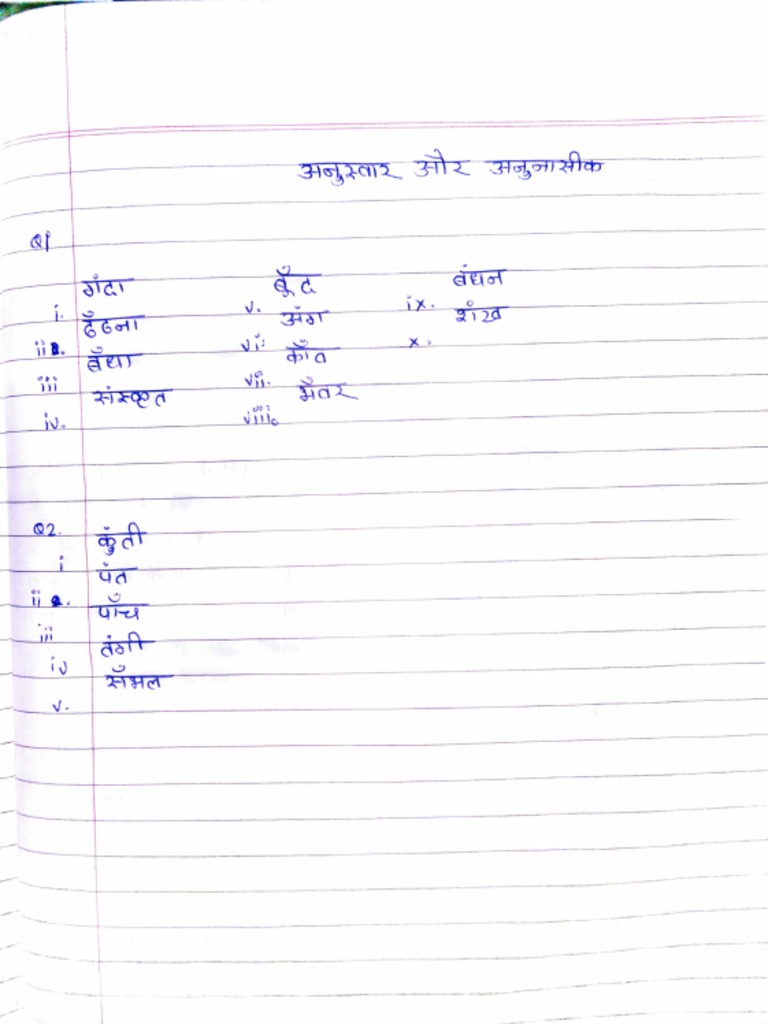 अनुस्वार और अनुनासीक
Q1
i. गंदा v. बूँद ix. बंधन
ii. ढूँढना vi. अंग x. शंख
iii बँधा vii. काँत
iv. संस्कृत viii. भँवर
Q2.
i कुंती
ii. पंत
iii पाँच
iv तंगी
v. सँभल